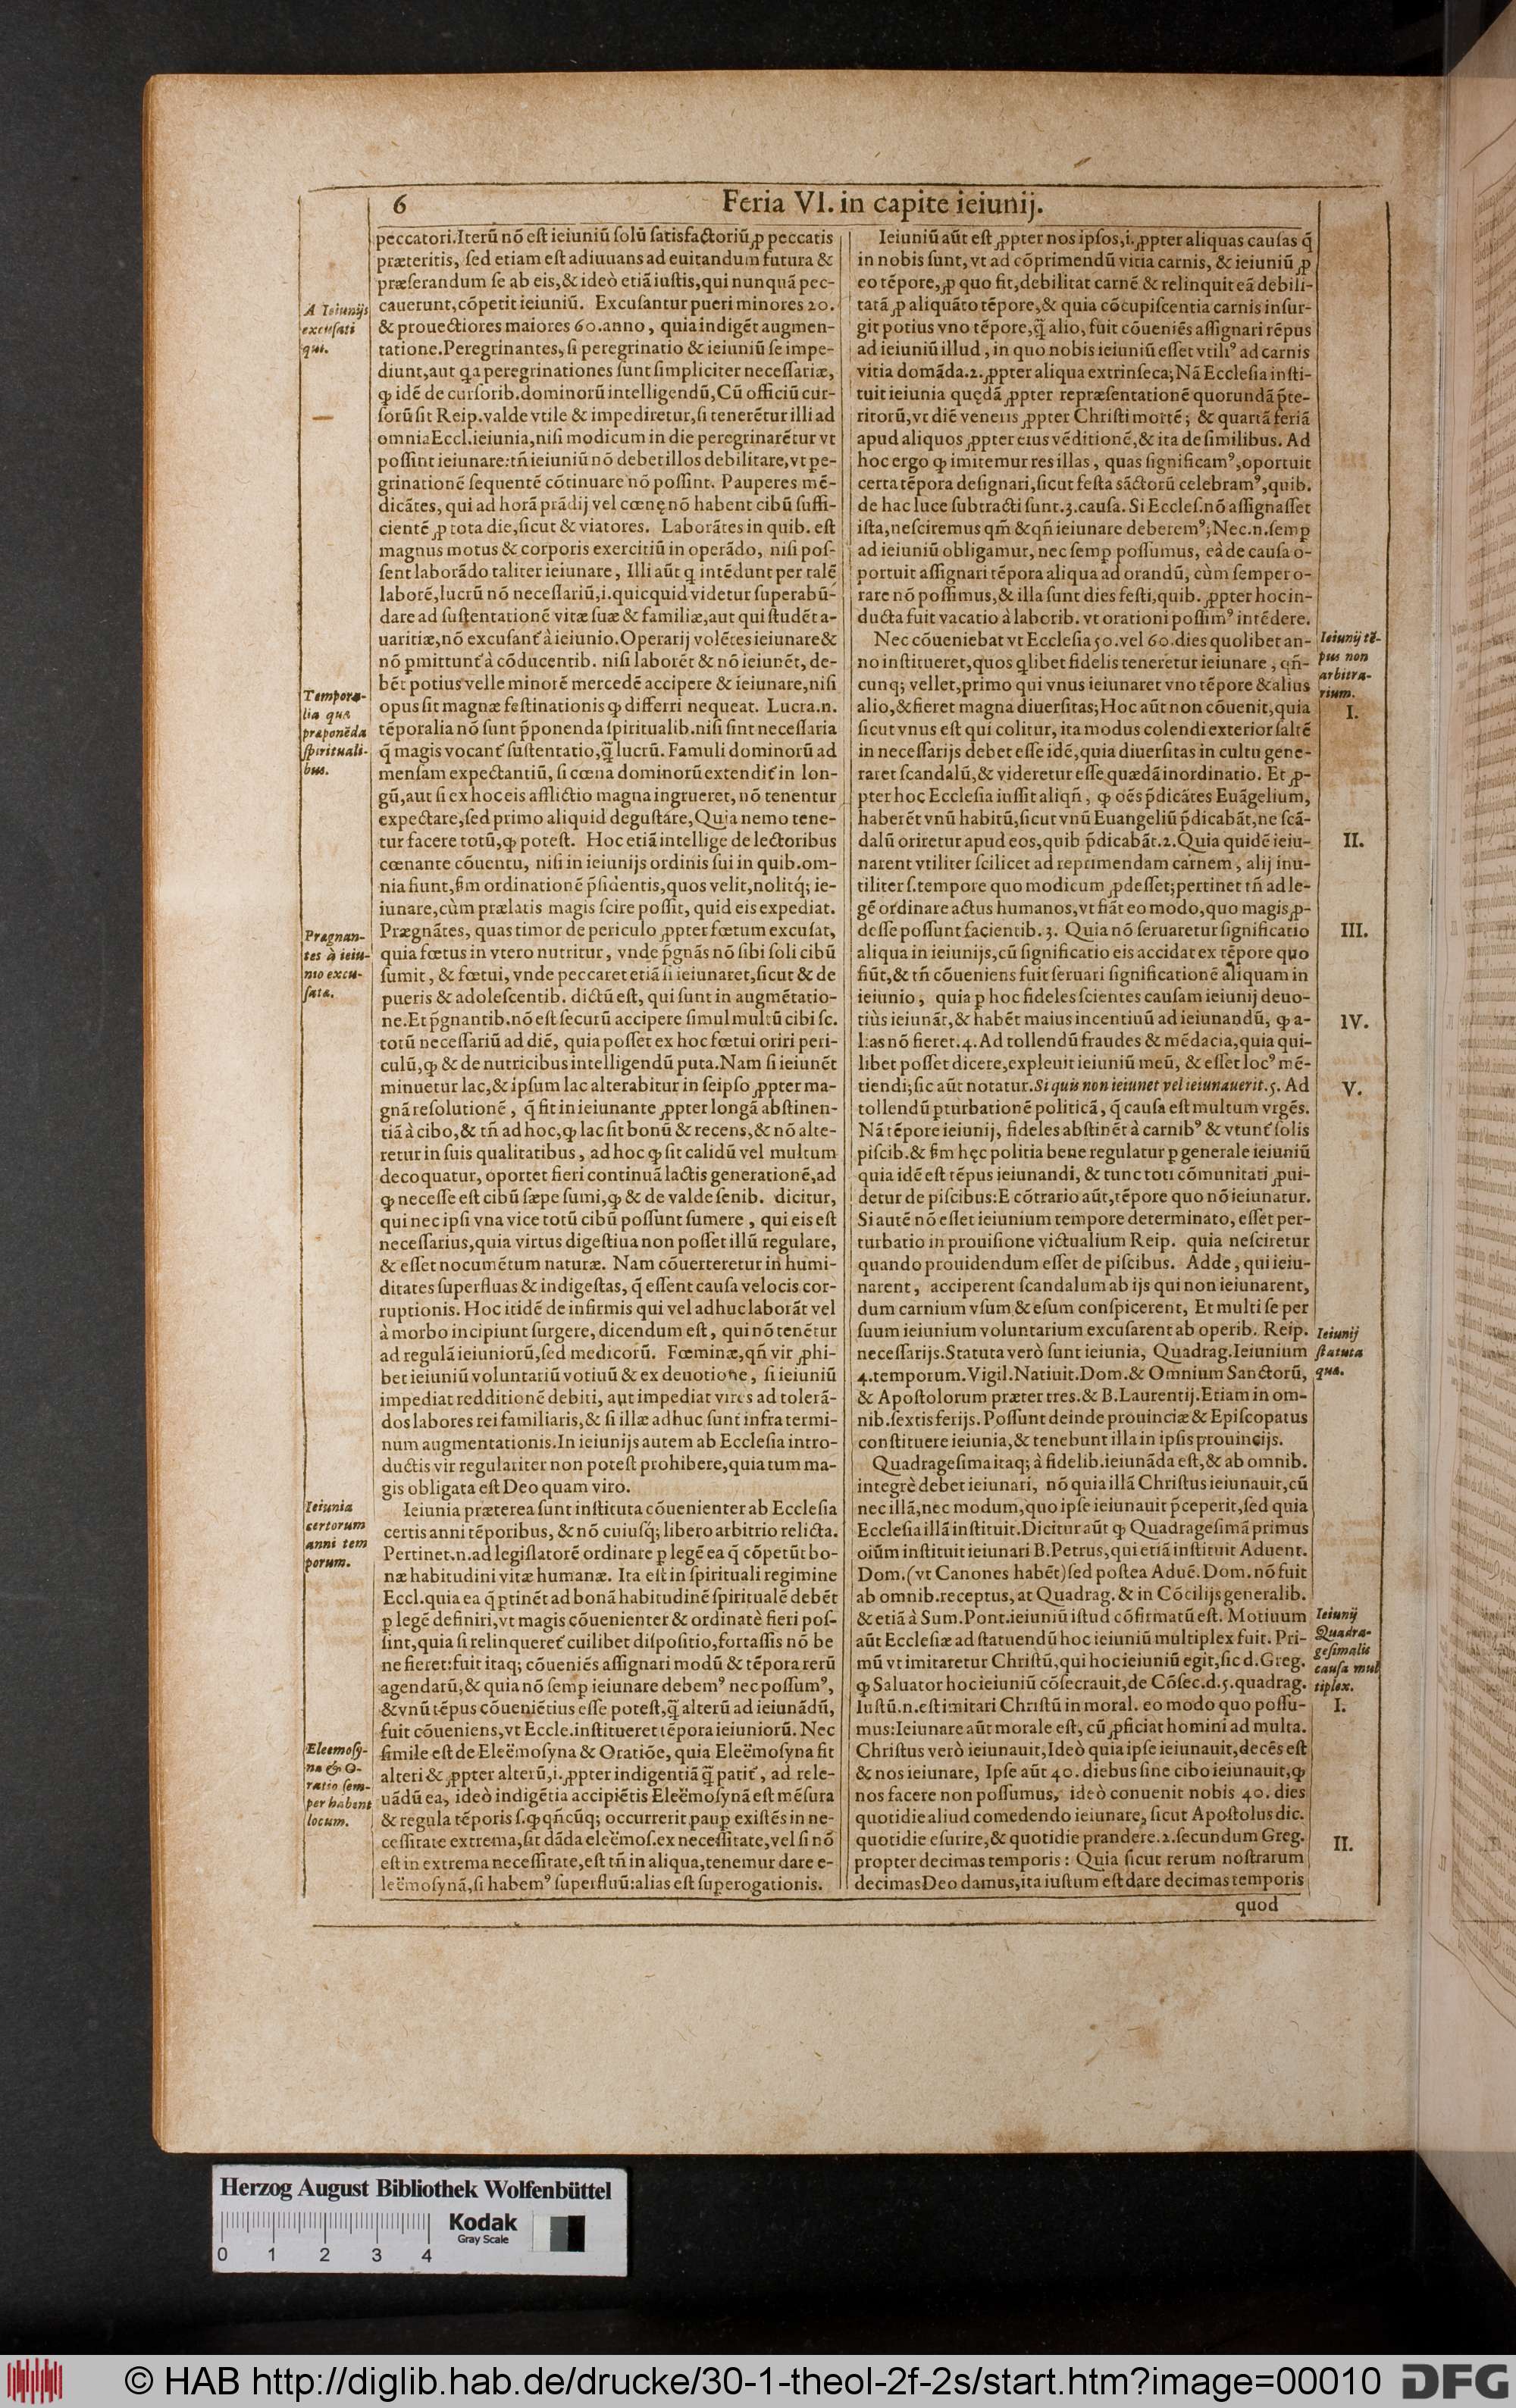 6 Feria VI. in capite ieiunij.
peccatori. Iterũ nõ eſt ieiuniũ ſolũ ſatisfactoriũ ꝓ peccatis
præteritis, ſed etiam eſt adiuuans ad euitandum futura &
præſerandum ſe ab eis, & ideò etiã iuſtis, qui nunquã pec-
cauerunt, cõpetit ieiuniũ. Excuſantur pueri minores 20.
& prouectiores maiores 60. anno, quia indigẽt augmen-
tatione. Peregrinantes, ſi peregrinatio & ieiuniũ ſe impe-
diunt, aut qa peregrinationes ſunt ſimpliciter neceſſariæ,
ꝙ idẽ de curſorib. dominorũ intelligendũ, Cũ officiũ cur-
ſorũ ſit Reip. valde vtile & impediretur, ſi tenerẽtur illi ad
omnia Eccl. ieiunia, niſi modicum in die peregrinarẽtur vt
poſſint ieiunare: tñ ieiuniũ nõ debet illos debilitare, vt pe-
grinationẽ ſequentẽ cõtinuare nõ poſſint. Pauperes mẽ-
dicãtes, qui ad horã prãdij vel cœnę nõ habent cibũ ſuffi-
cientẽ ꝓ tota die, ſicut & viatores. Laborãtes in quib. eſt
magnus motus & corporis exercitiũ in operãdo, niſi poſ-
ſent laborãdo taliter ieiunare, Illi aũt q intẽdunt per talẽ
laborẽ, lucrũ nõ neceſſariũ, i. quicquid videtur ſuperabũ-
dare ad ſuſtentationẽ vitæ ſuæ & familiæ, aut qui ſtudẽt a-
uaritiæ, nõ excuſanť à ieiunio. Operarij volẽtes ieiunare &
nõ ꝑmittunť à cõducentib. niſi laborẽt & nõ ieiunẽt, de-
bẽt potius velle minorẽ mercedẽ accipere & ieiunare, niſi
opus ſit magnæ feſtinationis ꝙ differri nequeat. Lucra. n.
tẽporalia nõ ſunt p̃ponenda ſpiritualib. niſi ſint neceſſaria
q̃ magis vocanť ſuſtentatio, q̃ lucrũ. Famuli dominorũ ad
menſam expectantiũ, ſi cœna dominorũ extendiť in lon-
gũ, aut ſi ex hoc eis afflictio magna ingrueret, nõ tenentur
expectare, ſed primo aliquid deguſtare, Quia nemo tene-
tur facere totũ, ꝙ poteſt. Hoc etiã intellige de lectoribus
cœnante cõuentu, niſi in ieiunijs ordinis ſui in quib. om-
nia fiunt, ſm ordinationẽ p̃ſidentis, quos velit, nolitq́; ie-
iunare, cùm prælatis magis ſcire poſſit, quid eis expediat.
Prægnãtes, quas timor de periculo ꝓpter fœtum excuſat,
quia fœtus in vtero nutritur, vnde p̃gnãs nõ ſibi ſoli cibũ
ſumit, & fœtui, vnde peccaret etiã ſi ieiunaret, ſicut & de
pueris & adoleſcentib. dictũ eſt, qui ſunt in augmẽtatio-
ne. Et p̃gnantib. nõ eſt ſecurũ accipere ſimul multũ cibi ſc.
totũ neceſſariũ ad diẽ, quia poſſet ex hoc fœtui oriri peri-
culũ, ꝙ & de nutricibus intelligendũ puta. Nam ſi ieiunẽt
minuetur lac, & ipſum lac alterabitur in ſeipſo ꝓpter ma-
gnã reſolutionẽ, q̃ fit in ieiunante ꝓpter longã abſtinen-
tiã à cibo, & tñ ad hoc, ꝙ lac ſit bonũ & recens, & nõ alte-
retur in ſuis qualitatibus, ad hoc ꝙ ſit calidũ vel multum
decoquatur, oportet fieri continuã lactis generationẽ, ad
ꝙ neceſſe eſt cibũ ſæpe ſumi, ꝙ & de valde ſenib. dicitur,
qui nec ipſi vna vice totũ cibũ poſſunt ſumere, qui eis eſt
neceſſarius, quia virtus digeſtiua non poſſet illũ regulare,
& eſſet nocumẽtum naturæ. Nam cõuerteretur in humi-
ditates ſuperfluas & indigeſtas, q̃ eſſent cauſa velocis cor-
ruptionis. Hoc itidẽ de infirmis qui vel adhuc laborãt vel
à morbo incipiunt ſurgere, dicendum eſt, qui nõ tenẽtur
ad regulã ieiuniorũ, ſed medicorũ. Fœminæ, qñ vir ꝓhi-
bet ieiuniũ voluntariũ votiuũ & ex deuotione, ſi ieiuniũ
impediat redditionẽ debiti, aut impediat vires ad tolerã-
dos labores rei familiaris, & ſi illæ adhuc ſunt infra termi-
num augmentationis. In ieiunijs autem ab Eccleſia intro-
ductis vir regulariter non poteſt prohibere, quia tum ma-
gis obligata eſt Deo quam viro.
Ieiunia præterea ſunt inſtituta cõuenienter ab Eccleſia
certis anni tẽporibus, & nõ cuiuſq́; libero arbitrio relicta.
Pertinet. n. ad legiſlatorẽ ordinare ꝑ legẽ ea q̃ cõpetũt bo-
næ habitudini vitæ humanæ. Ita eſt in ſpirituali regimine
Eccl. quia ea q̃ ꝑtinẽt ad bonã habitudinẽ ſpiritualẽ debẽt
ꝑ legẽ definiri, vt magis cõuenienter & ordinatè fieri poſ-
ſint, quia ſi relinquereť cuilibet diſpoſitio, fortaſſis nõ be
ne fieret: fuit itaq; cõueniẽs aſſignari modũ & tẽpora rerũ
agendarũ, & quia nõ ſemꝑ ieiunare debemꝰ nec poſſumꝰ,
& vnũ tẽpus cõueniẽtius eſſe poteſt, q̃ alterũ ad ieiunãdũ,
fuit cõueniens, vt Eccle. inſtitueret tẽpora ieiuniorũ. Nec
ſimile eſt de Eleëmoſyna & Oratiõe, quia Eleëmoſyna fit
alteri & ꝓpter alterũ, i. ꝓpter indigentiã q̃ patiť, ad rele-
uãdũ ea, ideò indigẽtia accipiẽtis Eleëmoſynã eſt mẽſura
& regula tẽporis ſ. ꝙ qñcũq; occurrerit pauꝑ exiſtẽs in ne-
ceſſitate extrema, ſit dãda eleëmoſ. ex neceſſitate, vel ſi nõ
eſt in extrema neceſſitate, eſt tñ in aliqua, tenemur dare e-
leëmoſynã, ſi habemꝰ ſuperfluũ: alias eſt ſuperogationis.
A Ieiunijs
excuſati
qui.
Tempora-
lia quæ
præponẽda
ſpirituali-
bus.
Prægnan-
tes à ieiu-
nio excu-
ſata.
Ieiunia
certorum
anni tem
porum.
Eleemoſy-
na & O-
ratio ſem-
per habent
locum.
Ieiuniũ aũt eſt ꝓpter nos ipſos, i. ꝓpter aliquas cauſas q̃
in nobis ſunt, vt ad cõprimendũ vitia carnis, & ieiuniũ ꝓ
eo tẽpore, ꝓ quo fit, debilitat carnẽ & relinquit eã debili-
tatã ꝓ aliquãto tẽpore, & quia cõcupiſcentia carnis inſur-
git potius vno tẽpore, q̃ alio, fuit cõueniẽs aſſignari tẽpus
ad ieiuniũ illud, in quo nobis ieiuniũ eſſet vtiliꝰ ad carnis
vitia domãda. 2. ꝓpter aliqua extrinſeca; Nã Eccleſia inſti-
tuit ieiunia quędã ꝓpter repræſentationẽ quorundã p̃te-
ritorũ, vt diẽ veneris ꝓpter Chriſti mortẽ; & quartã feriã
apud aliquos ꝓpter eius vẽditionẽ, & ita de ſimilibus. Ad
hoc ergo ꝙ imitemur res illas, quas ſignificamꝰ, oportuit
certa tẽpora deſignari, ſicut feſta sãctorũ celebramꝰ, quib.
de hac luce ſubtracti ſunt. 3. cauſa. Si Eccleſ. nõ aſſignaſſet
iſta, neſciremus qm̃ & qñ ieiunare deberemꝰ; Nec. n. ſemꝑ
ad ieiuniũ obligamur, nec ſemꝑ poſſumus, eà de cauſa o-
portuit aſſignari tẽpora aliqua ad orandũ, cùm ſemper o-
rare nõ poſſimus, & illa ſunt dies feſti, quib. ꝓpter hoc in-
ducta fuit vacatio à laborib. vt orationi poſſimꝰ intẽdere.
Nec cõueniebat vt Eccleſia 50. vel 60. dies quolibet an-
no inſtitueret, quos qlibet fidelis teneretur ieiunare, qñ-
cunq; vellet, primo qui vnus ieiunaret vno tẽpore & alius
alio, & fieret magna diuerſitas; Hoc aũt non cõuenit, quia
ſicut vnus eſt qui colitur, ita modus colendi exterior ſaltẽ
in neceſſarijs debet eſſe idẽ, quia diuerſitas in cultu gene-
raret ſcandalũ, & videretur eſſe quædã inordinatio. Et ꝓ-
pter hoc Eccleſia iuſſit aliqñ, ꝙ oẽs p̃dicãtes Euãgelium,
haberẽt vnũ habitũ, ſicut vnũ Euangeliũ p̃dicabãt, ne ſcã-
dalũ oriretur apud eos, quib p̃dicabãt. 2. Quia quidẽ ieiu-
narent vtiliter ſcilicet ad reprimendam carnem, alij inu-
tiliter ſ. tempore quo modicum ꝓdeſſet; pertinet tñ ad le-
gẽ ordinare actus humanos, vt fiãt eo modo, quo magis ꝓ-
deſſe poſſunt facientib. 3. Quia nõ ſeruaretur ſignificatio
aliqua in ieiunijs, cũ ſignificatio eis accidat ex tẽpore quo
fiũt, & tñ cõueniens fuit ſeruari ſignificationẽ aliquam in
ieiunio, quia ꝑ hoc fideles ſcientes cauſam ieiunij deuo-
tiùs ieiunãt, & habẽt maius incentiuũ ad ieiunandũ, ꝙ a-
lias nõ fieret. 4. Ad tollendũ fraudes & mẽdacia, quia qui-
libet poſſet dicere, expleui ieiuniũ meũ, & eſſet locꝰ mẽ-
tiendi; ſic aũt notatur. Si quis non ieiunet vel ieiunauerit. 5. Ad
tollendũ ꝑturbationẽ politicã, q̃ cauſa eſt multum vrgẽs.
Nã tẽpore ieiunij, fideles abſtinẽt à carnibꝰ & vtunť ſolis
piſcib. & ſm hęc politia bene regulatur ꝑ generale ieiuniũ
quia idẽ eſt tẽpus ieiunandi, & tunc toti cõmunitati ꝓui-
detur de piſcibus: E cõtrario aũt, tẽpore quo nõ ieiunatur.
Si autẽ nõ eſſet ieiunium tempore determinato, eſſet per-
turbatio in prouiſione victualium Reip. quia neſciretur
quando prouidendum eſſet de piſcibus. Adde, qui ieiu-
narent, acciperent ſcandalum ab ijs qui non ieiunarent,
dum carnium vſum & eſum conſpicerent, Et multi ſe per
ſuum ieiunium voluntarium excuſarent ab operib. Reip.
neceſſarijs. Statuta verò ſunt ieiunia, Quadrag. Ieiunium
4. temporum. Vigil. Natiuit. Dom. & Omnium Sanctorũ,
& Apoſtolorum præter tres. & B. Laurentij. Etiam in om-
nib. ſextis ferijs. Poſſunt deinde prouinciæ & Epiſcopatus
conſtituere ieiunia, & tenebunt illa in ipſis prouincijs.
Quadrageſima itaq; à fidelib. ieiunãda eſt, & ab omnib.
integrè debet ieiunari, nõ quia illã Chriſtus ieiunauit, cũ
nec illã, nec modum, quo ipſe ieiunauit p̃ceperit, ſed quia
Eccleſia illã inſtituit. Dicitur aũt ꝙ Quadrageſimã primus
oiũm inſtituit ieiunari B. Petrus, qui etiã inſtituit Aduent.
Dom. (vt Canones habẽt) ſed poſtea Aduẽ. Dom. nõ fuit
ab omnib. receptus, at Quadrag. & in Cõcilijs generalib.
& etiã à Sum. Pont. ieiuniũ iſtud cõfirmatũ eſt. Motiuum
aũt Eccleſiæ ad ſtatuendũ hoc ieiuniũ multiplex fuit. Pri-
mũ vt imitaretur Chriſtũ, qui hoc ieiuniũ egit, ſic d. Greg.
ꝙ Saluator hoc ieiuniũ cõſecrauit, de Cõſec. d. 5. quadrag.
Iuſtũ. n. eſt imitari Chriſtũ in moral. eo modo quo poſſu-
mus: Ieiunare aũt morale eſt, cũ ꝓficiat homini ad multa.
Chriſtus verò ieiunauit, Ideò quia ipſe ieiunauit, decẽs eſt
& nos ieiunare, Ipſe aũt 40. diebus ſine cibo ieiunauit, ꝙ
nos facere non poſſumus, ideò conuenit nobis 40. dies
quotidie aliud comedendo ieiunare, ſicut Apoſtolus dic.
quotidie eſurire, & quotidie prandere. 2. ſecundum Greg.
propter decimas temporis: Quia ſicut rerum noſtrarum
decimas Deo damus, ita iuſtum eſt dare decimas temporis
quod
Ieiunij tẽ-
pus non
arbitra-
rium.
I.
II.
III.
IV.
V.
Ieiunij
ſtatuta
quæ.
Ieiunij
Quadra-
geſimalis
cauſa mul
tiplex.
I.
II.
Herzog August Bibliothek Wolfenbüttel
Kodak
Gray Scale
0 1 2 3 4
© HAB http://diglib.hab.de/drucke/30-1-theol-2f-2s/start.htm?image=00010 DFG